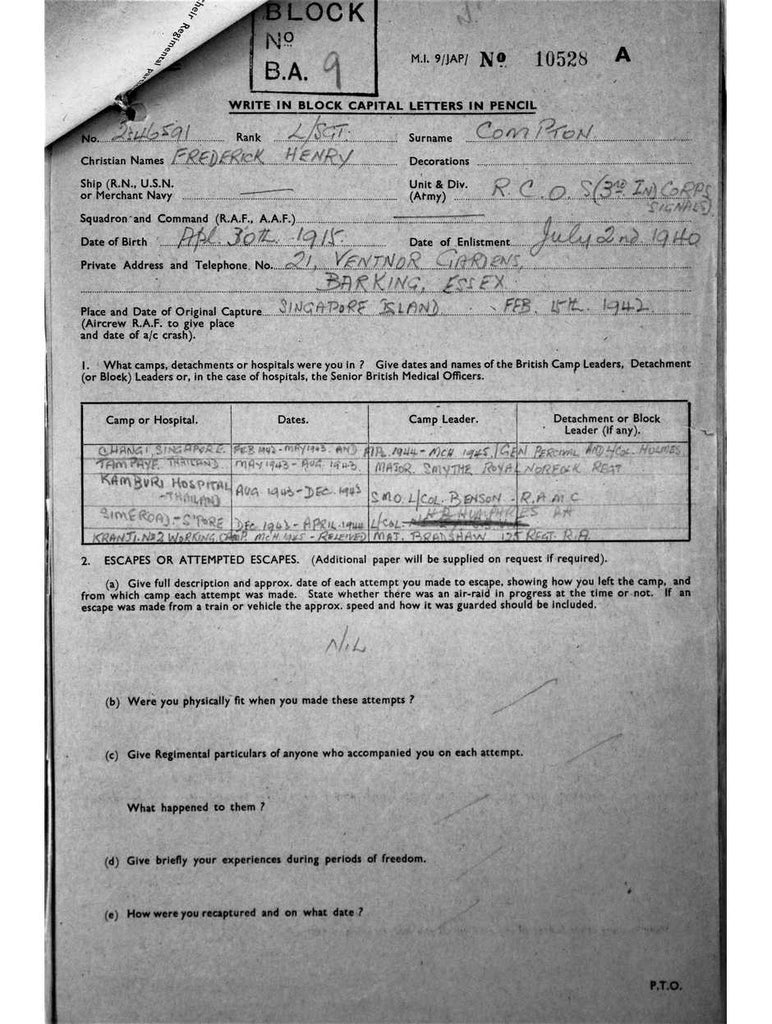 their Regimental Par
BLOCK
Nº
B.A. 9
M.I. 9/JAP/ Nº 10528 A
WRITE IN BLOCK CAPITAL LETTERS IN PENCIL
No. 2346591 Rank L/SGT. Surname COMPTON
Christian Names FREDERICK HENRY Decorations
Ship (R.N., U.S.N. or Merchant Navy — Unit & Div. (Army) R.C.O.S (3RD. IN) CORPS SIGNALS).
Squadron and Command (R.A.F., A.A.F.)
Date of Birth Apl. 30th. 1915. Date of Enlistment July 2nd 1940
Private Address and Telephone No. 21, VENTNOR GARDENS,
BARKING, ESSEX
Place and Date of Original Capture SINGAPORE ISLAND. FEB. 15th. 1942.
(Aircrew R.A.F. to give place
and date of a/c crash).
1. What camps, detachments or hospitals were you in ? Give dates and names of the British Camp Leaders, Detachment
(or Block) Leaders or, in the case of hospitals, the Senior British Medical Officers.
Camp or Hospital. Dates. Camp Leader. Detachment or Block Leader (if any).
CHANGI SINGAPORE. FEB 1942-MAY 1943. AND APL. 1944-MCH 1945. GEN PERCIVAL AND L/COL. HOLMES
TAMPAYE. THAILAND. MAY 1943-AUG. 1943. MAJOR SMYTHE ROYAL NORFOLK REGT
KAMBURI HOSPITAL -THAILAND AUG. 1943-DEC. 1943 S.M.O. L/COL. BENSON - R.A.M.C
SIMEROAD-S'PORE DEC 1943-APRIL. 1944 L/COL. HUMPHRIES RA
KRANJI. No2 WORKING CAMP. MCH 1945-RELIEVED MAJ. BRADSHAW 125 REGT. R.A.
2. ESCAPES OR ATTEMPTED ESCAPES. (Additional paper will be supplied on request if required).
(a) Give full description and approx. date of each attempt you made to escape, showing how you left the camp, and
from which camp each attempt was made. State whether there was an air-raid in progress at the time or not. If an
escape was made from a train or vehicle the approx. speed and how it was guarded should be included.
NIL
(b) Were you physically fit when you made these attempts ?
(c) Give Regimental particulars of anyone who accompanied you on each attempt.
What happened to them ?
(d) Give briefly your experiences during periods of freedom.
(e) How were you recaptured and on what date ?
P.T.O.